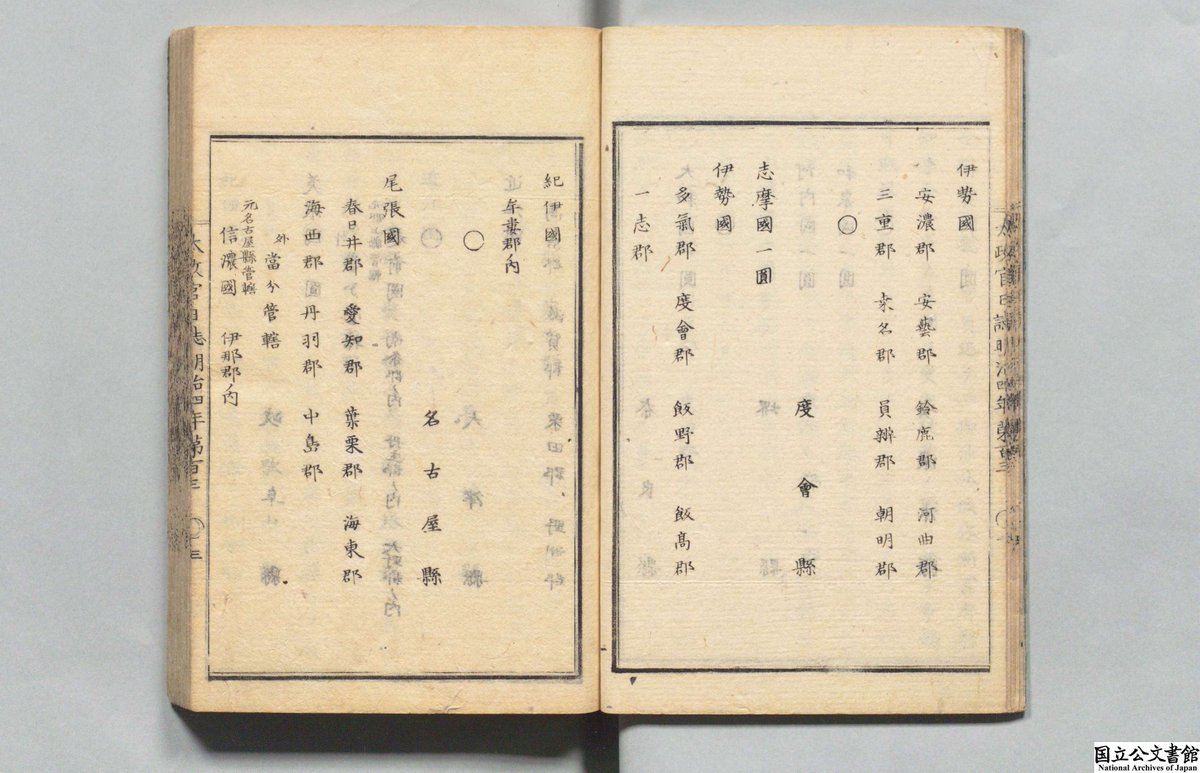 伊勢國
安濃郡 安藝郡 鈴鹿郡 河曲郡
三重郡 桒名郡 員辨郡 朝明郡
〇
度會縣
志摩國一圓
伊勢國
多氣郡 度會郡 飯野郡 飯髙郡
一志郡
紀伊國
牟婁郡ノ内
〇
名古屋縣
尾張國
春日井郡 愛知郡 葉栗郡 海東郡
海西郡 丹羽郡 中島郡
外當分管轄
元名古屋縣管轄
信濃國 伊那郡ノ内
太政官日誌明治四年第百三 〇三
国立公文書館
National Archives of Japan